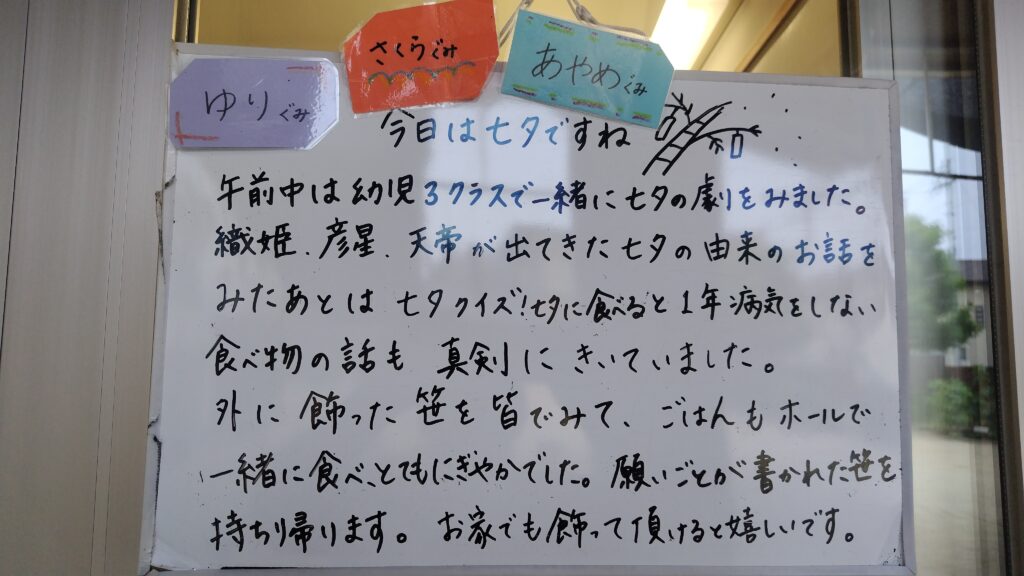 ゆりぐみ
さくらぐみ
あやめぐみ
今日は七夕ですね
午前中は幼児3クラスで一緒に七夕の劇をみました。
織姫、彦星、天帝が出てきた七夕の由来のお話を
みたあとは七夕クイズ!七夕に食べると1年病気をしない
食べ物の話も真剣にきいていました。
外に飾った笹を皆でみて、ごはんもホールで
一緒に食べ、とてもにぎやかでした。願いごとが書かれた笹を
持ちり帰ります。お家でも飾って頂けると嬉しいです。